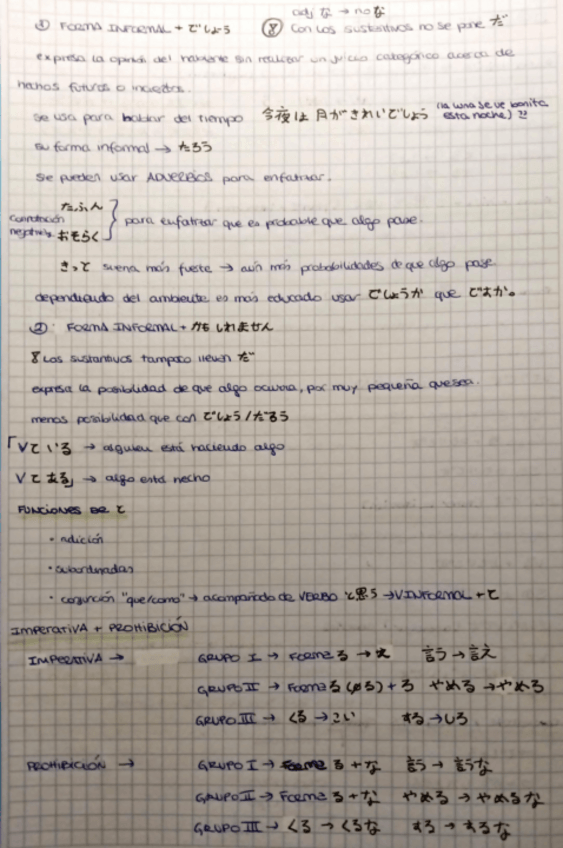 adj な → no な
① FORMA INFORMAL + でしょう ⑧ Con los sustantivos no se pone だ
expresa la opinión del hablante sin realizar un juicio categórico acerca de
hechos futuros o inciertos.
se usa para hablar del tiempo 今夜は月がきれいでしょう (la luna se ve bonita esta noche)
su forma informal → だろう
se pueden usar ADVERBIOS para enfatizar.
たぶん
おそらく } para enfatizar que es probable que algo pase.
Connotación negativa
きっと suena más fuerte → aún más probabilidades de que algo pase
dependiendo del ambiente es más educado usar でしょうか que ですか。
② FORMA INFORMAL + かもしれません
8 Los sustantivos tampoco llevan だ
expresa la posibilidad de que algo ocurra, por muy pequeña que sea.
menos posibilidad que con でしょう/だろう
「Vている → alguien está haciendo algo
Vてある」 → algo está hecho
FUNCIONES DE と
• adición
• subordinadas
• conjunción "que/como" → acompañado de VERBO と思う → V INFORMAL + と
IMPERATIVA + PROHIBICIÓN
IMPERATIVA → GRUPO I → Forma る → え 言う → 言え
GRUPO II → Forma る (ø る) + ろ やめる → やめろ
GRUPO III → くる → こい する → しろ
PROHIBICIÓN → GRUPO I → Forma る + な 言う → 言うな
GRUPO II → Forma る + な やめる → やめるな
GRUPO III → くる → くるな する → するな